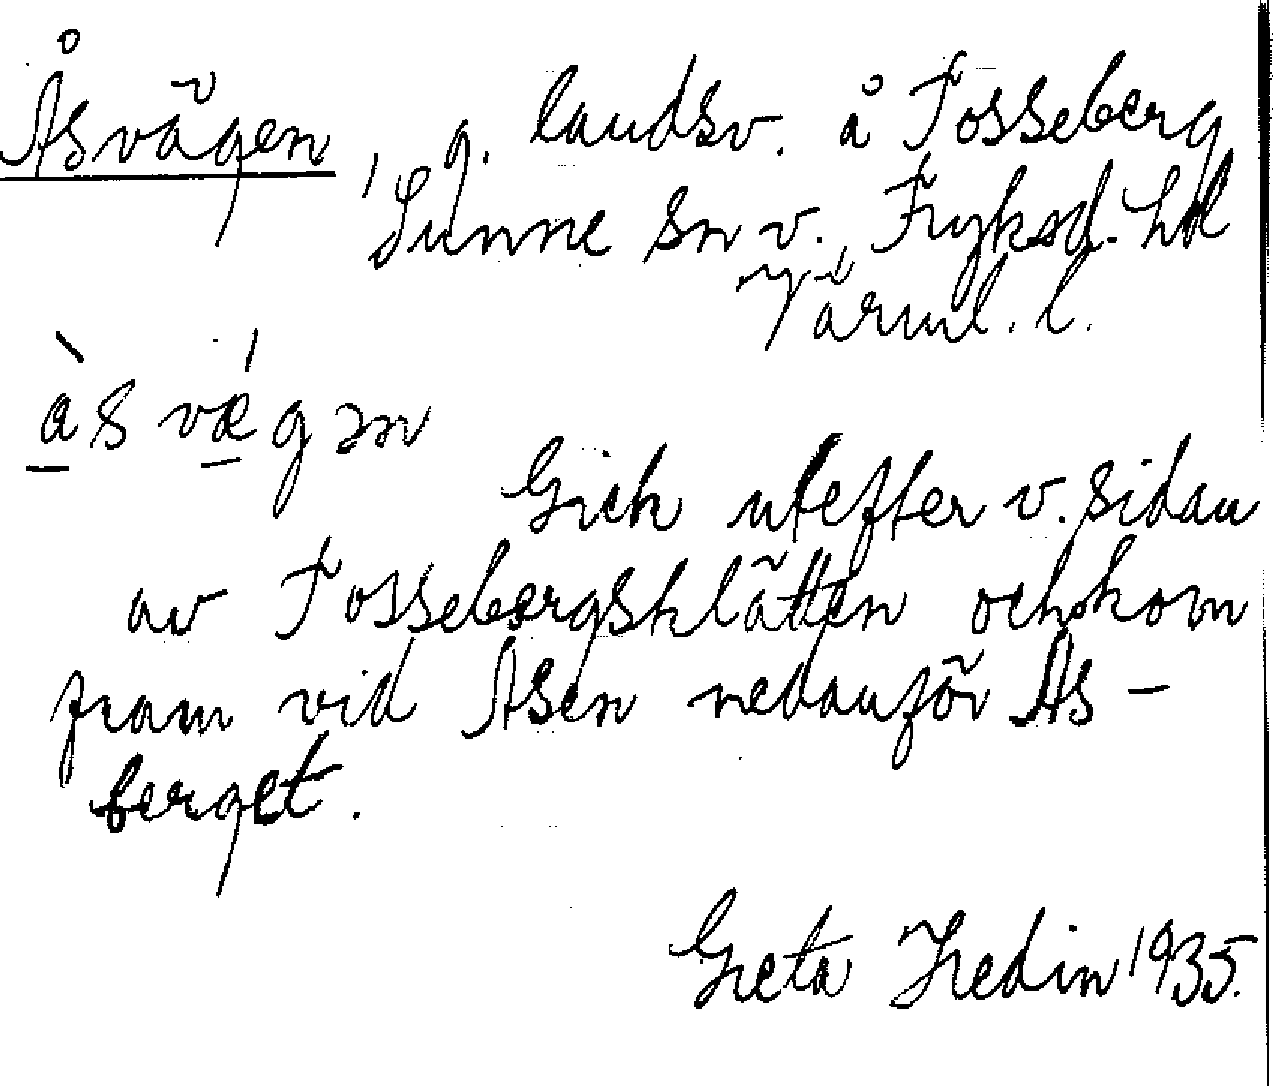 Åsvägen, g. landsv. å Fosseberg
Sunne sn v. Fryksd. hd
Värml. l.
às vǽgən
Gick utefter v. sidan
av Fossebergsklätten och kom
fram vid Åsen nedanför Ås-
berget.
Greta Hedin 1935.